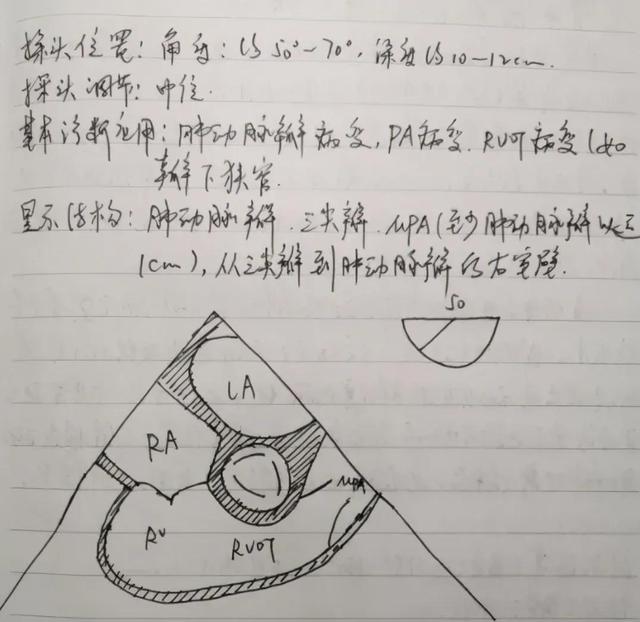 探头位置: 角度: 约50°-70°, 深度约10-12cm.
探头调节: 中位.
基本诊断应用: 肺动脉瓣病变, PA病变. RVOT病变(如
瓣下狭窄.
显示结构: 肺动脉瓣. 三尖瓣. MPA(至少肺动脉瓣以上
1cm), 从三尖瓣到肺动脉瓣的右室壁.
50
LA
RA
MPA
RV
RVOT